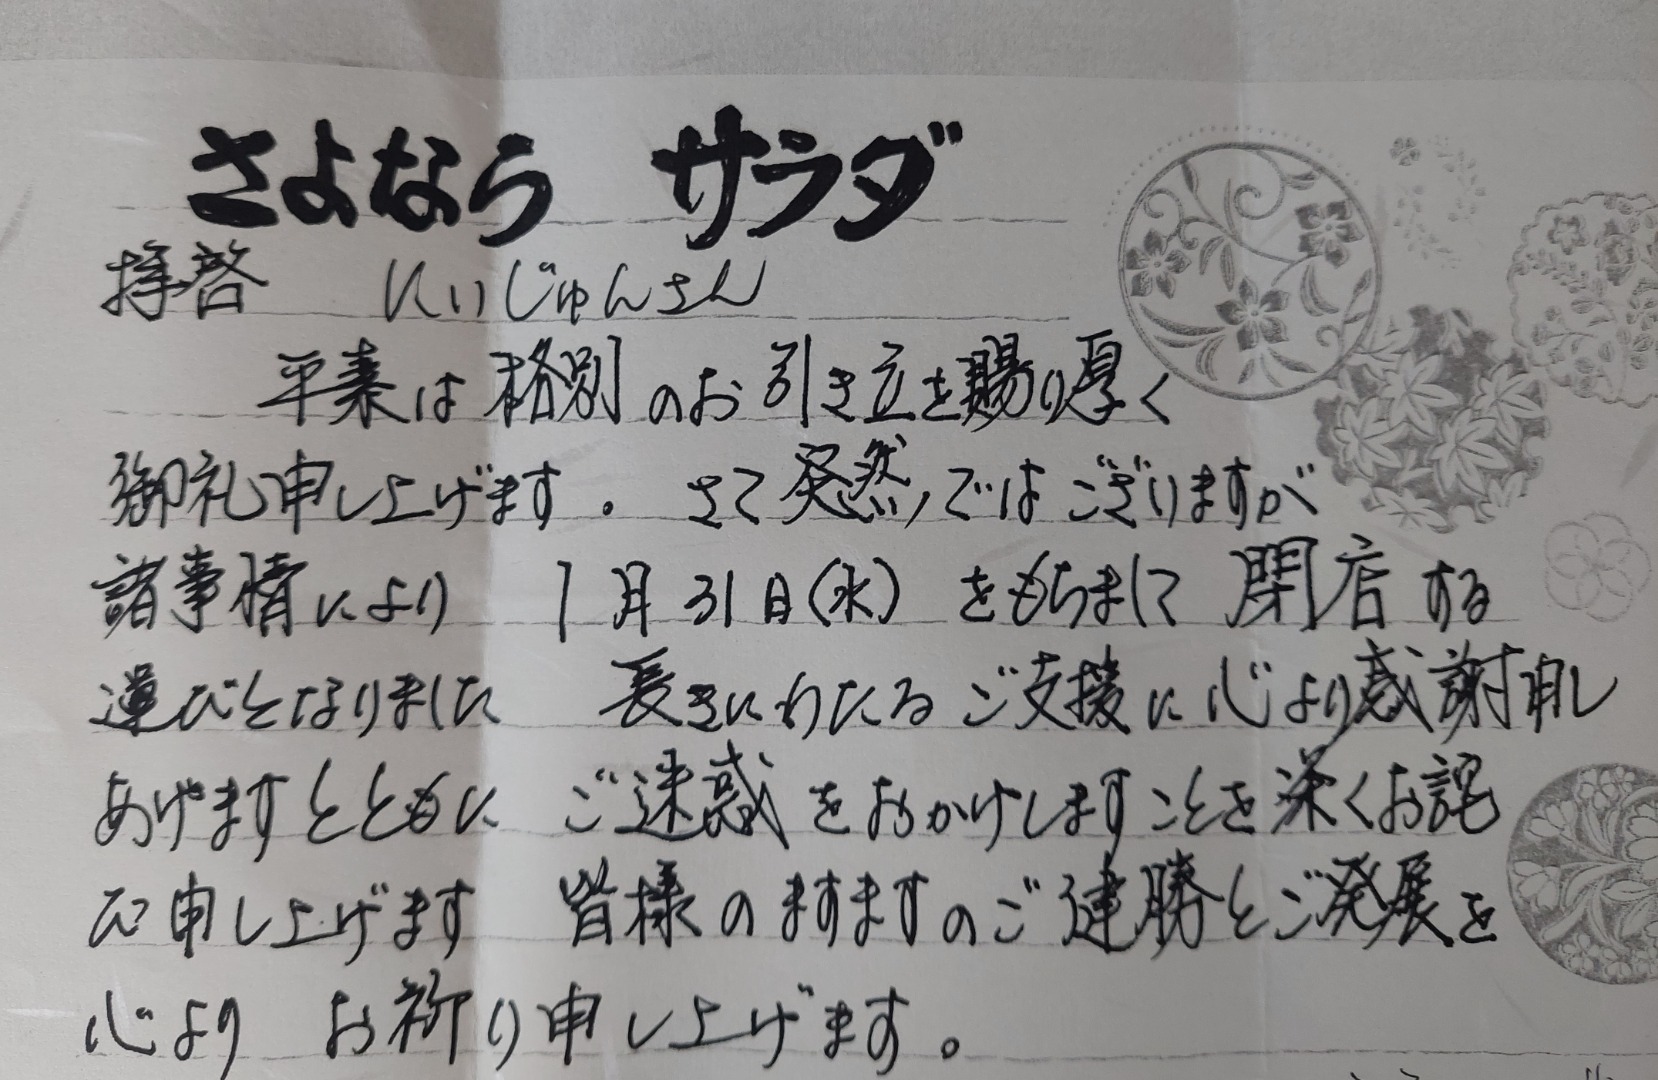 さよなら サラダ
拝啓 にいじゅんさん
平素は格別のお引き立を賜り厚く
御礼申し上げます。さて突然ではございますが
諸事情により 1月31日(水)をもちまして閉店する
運びとなりました 長きにわたるご支援に心より感謝申し
あげますとともに ご迷惑をおかけしますことを深くお詫
び申し上げます 皆様のますますのご連勝とご発展を
心より お祈り申し上げます。